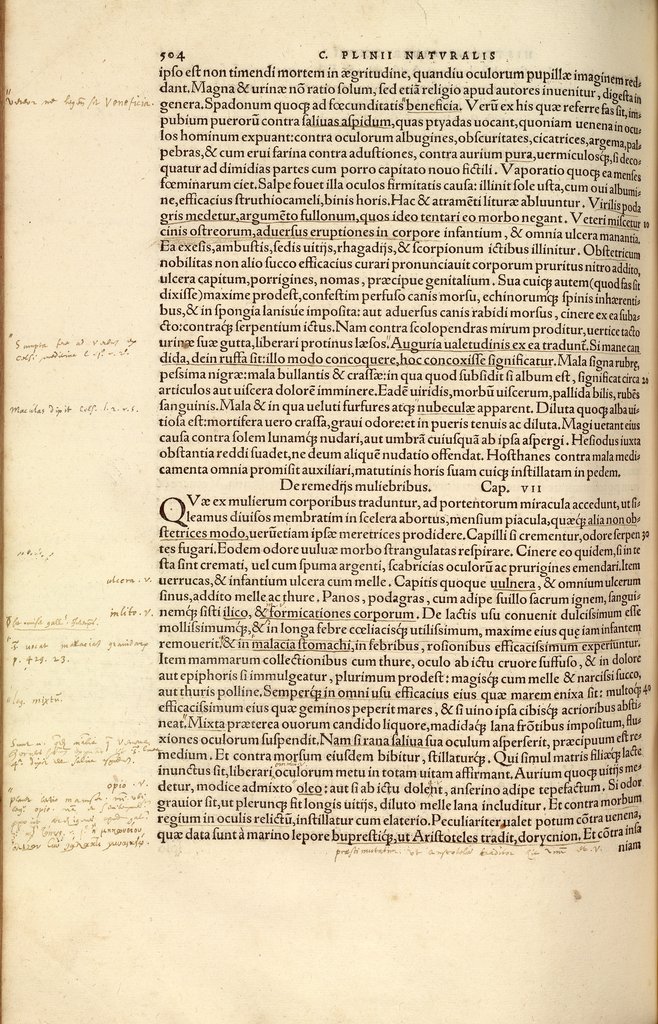 504
C. PLINII NATVRALIS
ipso est non timendi mortem in ægritudine, quandiu oculorum pupillæ imaginem red-
dant. Magna & urinæ nõ ratio solum, sed etiã religio apud autores inuenitur, digesta in
genera. Spadonum quoqʒ ad fœcunditatis beneficia. Verũ ex his quæ referre fas sit, im-
pubium puerorũ contra saliuas aspidum, quas ptyadas uocant, quoniam uenena in ocu
los hominum expuant: contra oculorum albugines, obscuritates, cicatrices, argema, pal-
pebras, & cum erui farina contra adustiones, contra aurium pura, uermiculosqʒ, si deco-
quatur ad dimidias partes cum porro capitato nouo fictili. Vaporatio quoqʒ ea menses
fœminarum ciet. Salpe fouet illa oculos firmitatis causa: illinit sole usta, cum oui albumi-
ne, efficacius struthiocameli, binis horis. Hac & atramẽti lituræ abluuntur. Virilis poda
gris medetur, argumẽto fullonum, quos ideo tentari eo morbo negant. Veteri miscetur 10
cinis ostreorum, aduersus eruptiones in corpore infantium, & omnia ulcera manantia.
Ea exesis, ambustis, sedis uitijs, rhagadijs, & scorpionum ictibus illinitur. Obstetricum
nobilitas non alio succo efficacius curari pronunciauit corporum pruritus nitro addito,
ulcera capitum, porrigines, nomas, præcipue genitalium. Sua cuiqʒ autem (quod fas sit
dixisse) maxime prodest, confestim perfuso canis morsu, echinorumqʒ spinis inhærenti-
bus, & in spongia lanisúe imposita: aut aduersus canis rabidi morsus, cinere ex ea suba-
cto: contraqʒ serpentium ictus. Nam contra scolopendras mirum proditur, uertice tacto
urinæ suæ gutta, liberari protinus læsos. Auguria ualetudinis ex ea tradunt. Si mane can
dida, dein ruffa sit: illo modo concoquere, hoc concoxisse significatur. Mala signa rubre,
pessima nigræ: mala bullantis & crassæ: in qua quod subsidit si album est, significat circa 20
articulos aut uiscera dolorẽ imminere. Eadẽ uiridis, morbũ uiscerum, pallida bilis, rubẽs
sanguinis. Mala & in qua ueluti furfures atqʒ nubeculæ apparent. Diluta quoqʒ alba ui-
tiosa est: mortifera uero crassa, graui odore: et in pueris tenuis ac diluta. Magi uetant eius
causa contra solem lunamqʒ nudari, aut umbrã cuiusquã ab ipsa aspergi. Hesiodus iuxta
obstantia reddi suadet, ne deum aliquẽ nudatio offendat. Hosthanes contra mala medi-
camenta omnia promisit auxiliari, matutinis horis suam cuiqʒ instillatam in pedem.
De remedijs muliebribus. Cap. VII
QVæ ex mulierum corporibus traduntur, ad portentorum miracula accedunt, ut si-
leamus diuisos membratim in scelera abortus, mensium piacula, quæqʒ alia non ob-
stetrices modo, uerũetiam ipsæ meretrices prodidere. Capilli si crementur, odore serpen 30
tes fugari. Eodem odore uuluæ morbo strangulatas respirare. Cinere eo quidem, si in te
sta sint cremati, uel cum spuma argenti, scabricias oculorũ ac prurigines emendari. Item
uerrucas, & infantium ulcera cum melle. Capitis quoque uulnera, & omnium ulcerum
sinus, addito melle ac thure. Panos, podagras, cum adipe suillo sacrum ignem, sangui-
nemqʒ sisti ilico, & formicationes corporum. De lactis usu conuenit dulcissimum esse
mollissimumqʒ, & in longa febre cœliacisqʒ utilissimum, maxime eius quę iam infantem
remouerit. & in malacia stomachi, in febribus, rosionibus efficacissimum experiuntur.
Item mammarum collectionibus cum thure, oculo ab ictu cruore suffuso, & in dolore
aut epiphoris si immulgeatur, plurimum prodest: magisqʒ cum melle & narcissi succo,
aut thuris polline. Semperqʒ in omni usu efficacius eius quæ marem enixa sit: multoqʒ 40
efficacissimum eius quæ geminos peperit mares, & si uino ipsa cibisqʒ acrioribus absti-
neat. Mixta præterea ouorum candido liquore, madidaqʒ lana frõtibus impositum, flu-
xiones oculorum suspendit. Nam si rana saliua sua oculum asperserit, præcipuum est re-
medium. Et contra morsum eiusdem bibitur, stillaturqʒ. Qui simul matris filiæqʒ lacte
inunctus sit, liberari oculorum metu in totam uitam affirmant. Aurium quoqʒ uitijs me-
detur, modice admixto oleo: aut si ab ictu doleãt, anserino adipe tepefactum. Si odor
grauior sit, ut plerunqʒ fit longis uitijs, diluto melle lana includitur. Et contra morbum
regium in oculis relictũ, instillatur cum elaterio. Peculiariter ualet potum cõtra uenena,
quæ data sunt à marino lepore buprestiqʒ, ut Aristoteles tradit, dorycnion. Et cõtra insa
niam
ulcera. v.
inlito. v.
leg. mixtũ.
opio. v.